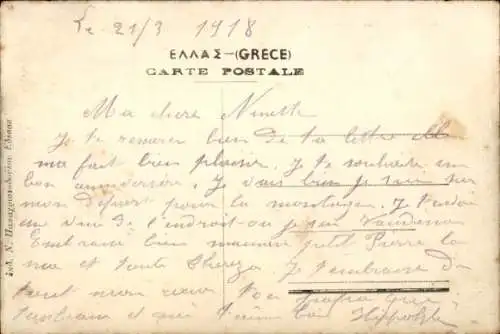 Le 21/3 1918
ΕΛΛΑΣ-(GRECE)
CARTE POSTALE
Ma chere Ninette
Je te remercie bien de ta lettre elle
ma fait bien plaisir. Je te souhaite un
bon anniversaire. Je vais bien je suis sur
mon départ pour la montagne. Je
une vue de l'endroit ou je suis
Embrasse bien maman petit Pierre la
et toute Je t'embrasse de
tout mon cœur ton papa que
et qui t'aime bien Hippolyte